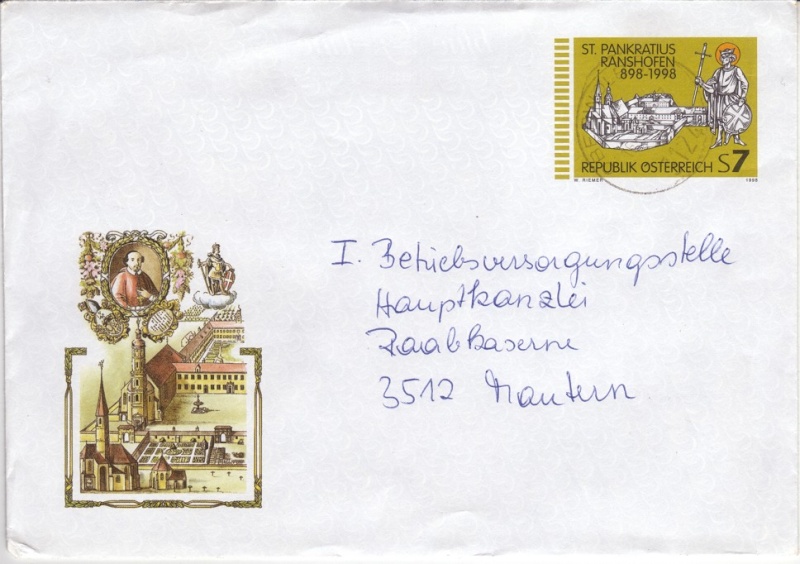 ST. PANKRATIUS
RANSHOFEN
898-1998
REPUBLIK ÖSTERREICH S7
W. RIEMER 1998
I. Betriebsversorgungsstelle
Hauptkanzlei
Raabkaserne
3512 Mautern